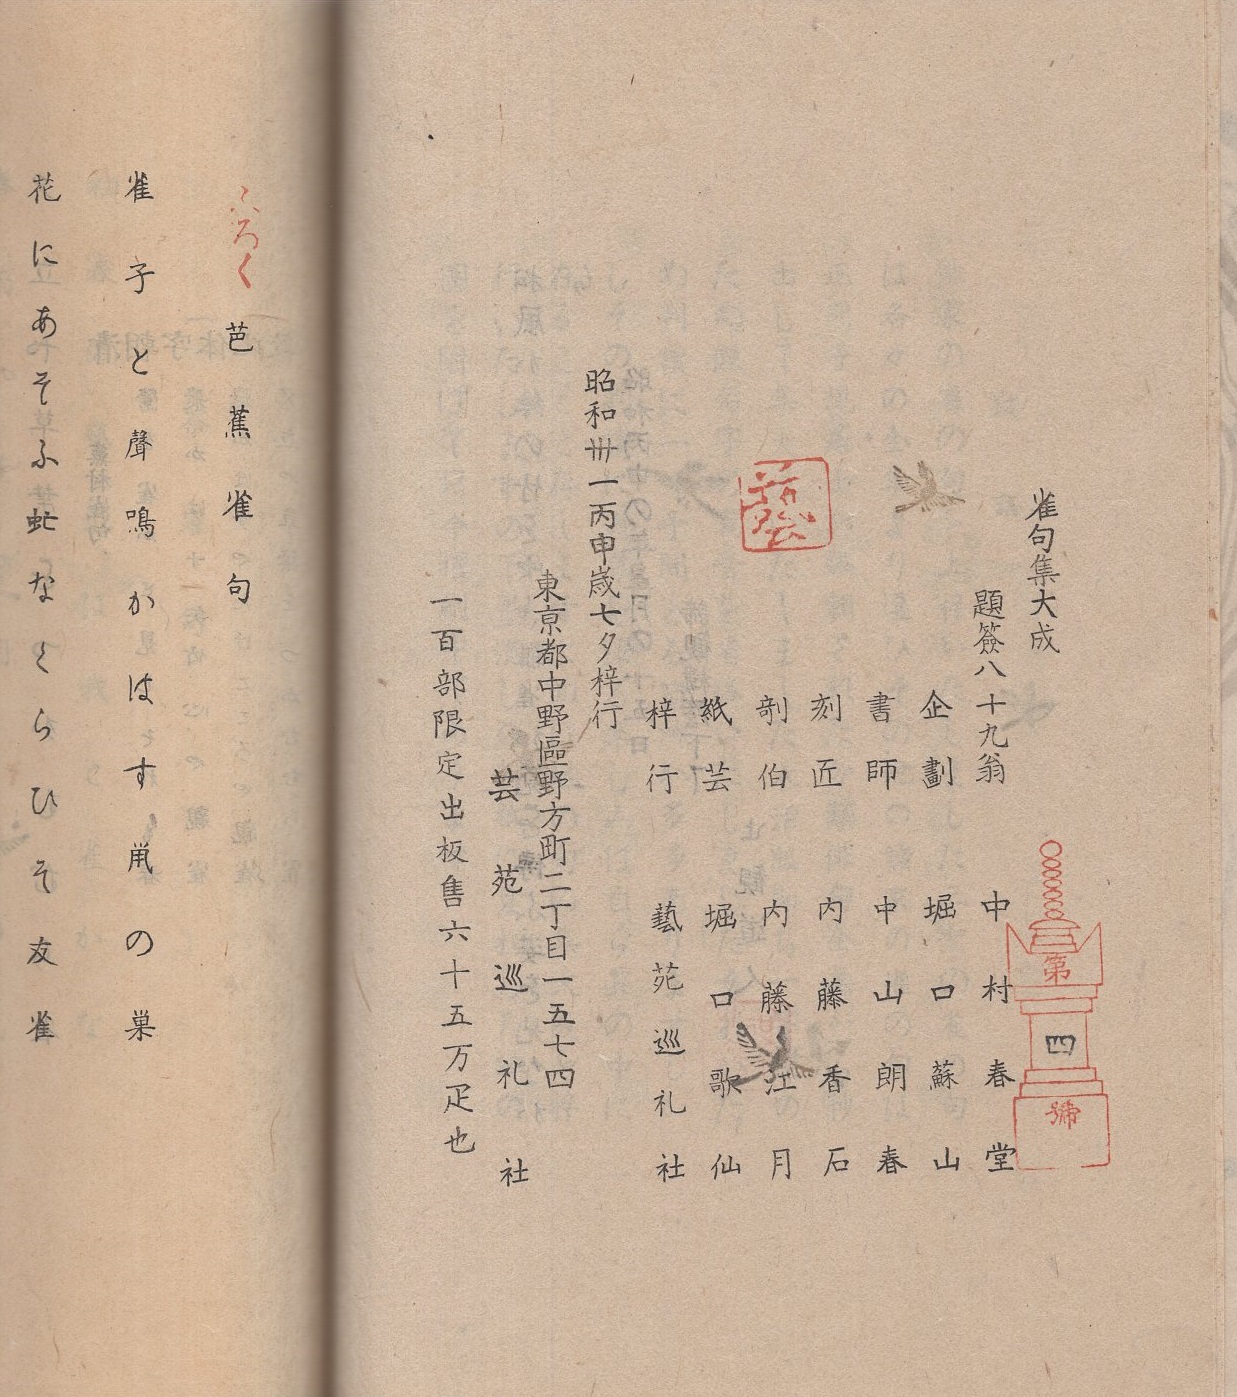 雀句集大成
題簽八十九翁 中村春堂
企劃 堀口蘇山
書師 中山朗春
刻匠 内藤香石
剞伯 内藤江月
紙芸 堀口歌仙
梓行 藝苑巡礼社
昭和卅一丙申歳七夕梓行
東京都中野區野方町二丁目一五七四
芸苑巡礼社
一百部限定出板售六十五万疋也
第四號
芭蕉雀句
雀子と聲鳴かはす鼡の巣
花にあそふ虻なくらひそ友雀